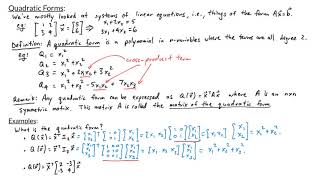 Quadratic Forms:
We're mostly looked at systems of linear equations, i.e., things of the form Ax̄=b̄.
eg [1 2; 3 4] x̄ = [5; 6] x₁+2x₂=5
3x₁+4x₂=6
Definition: A quadratic form is a polynomial in n-variables where the terms are all degree 2.
eg Q₁ = x₁²
Q₂ = x₁² + x₂²
Q₃ = x₁² + 2x₁x₂ + 3x₂² cross-product term
Q₄ = x₁² - 5x₁x₂ + 7x₂x₃
Remark: Any quadratic form can be expressed as Q(x̄) = x̄ᵀAx̄ where A is an n×n
symmetric matrix. This matrix A is called the matrix of the quadratic form.
Examples:
What is the quadratic form?
• Q(x̄) = x̄ᵀ I₂ x̄ = [x₁ x₂] [1 0; 0 1] [x₁; x₂] = [x₁ x₂] [x₁; x₂] = x₁² + x₂².
• Q(x̄) = x̄ᵀ I₃ x̄ = [x₁ x₂ x₃] [1 0 0; 0 1 0; 0 0 1] [x₁; x₂; x₃] = [x₁ x₂ x₃] [x₁; x₂; x₃] = x₁² + x₂² + x₃².
• Q(x̄) = x̄ᵀ